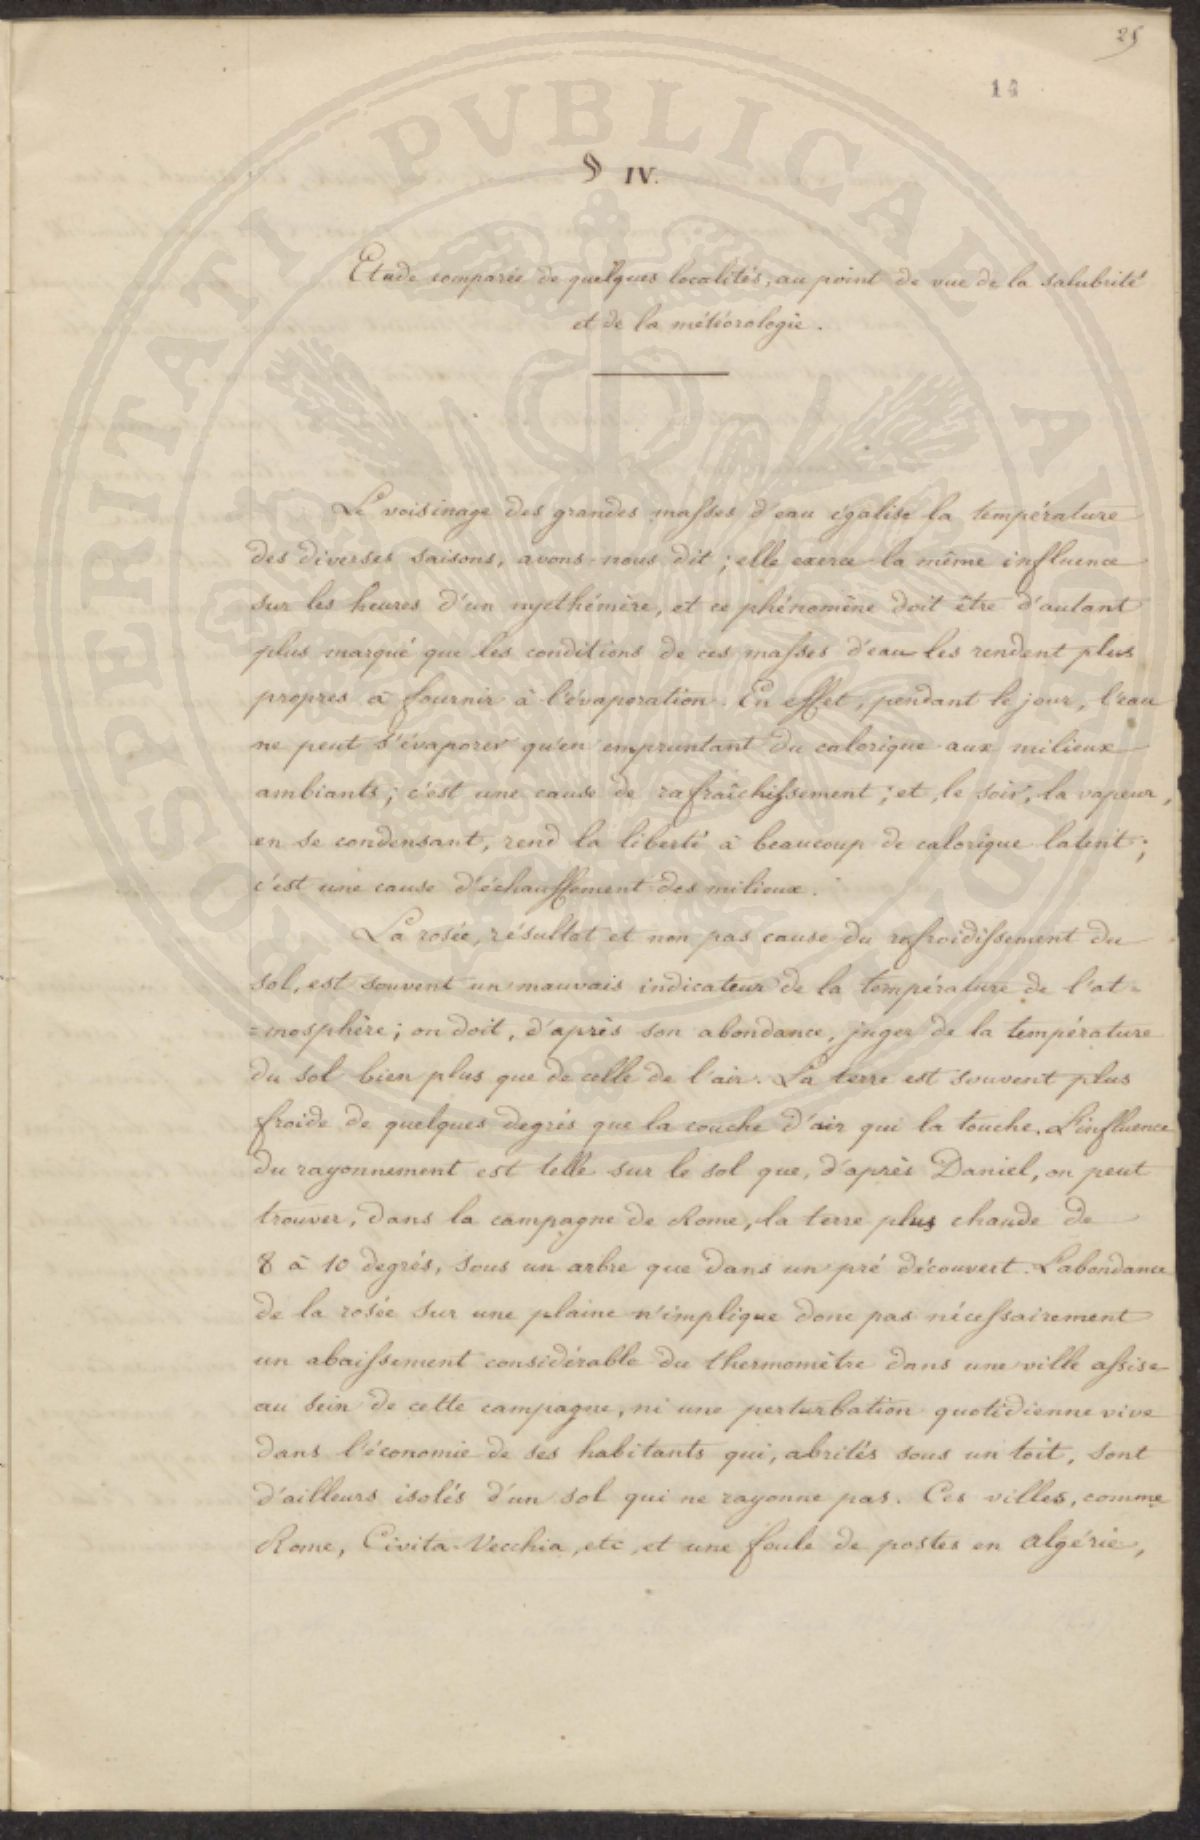 25
14
§ IV.
Etude comparée de quelques localités, au point de vue de la salubrité
et de la météorologie.
Le voisinage des grandes masses d'eau égalise la température
des diverses saisons, avons-nous dit ; elle exerce la même influence
sur les heures d'un nycthémère, et ce phénomène doit être d'autant
plus marqué que les conditions de ces masses d'eau les rendent plus
propres à fournir à l'évaporation. En effet, pendant le jour, l'eau
ne peut s'évaporer qu'en empruntant du calorique aux milieux
ambiants ; c'est une cause de rafraîchissement ; et, le soir, la vapeur,
en se condensant, rend la liberté à beaucoup de calorique latent ;
c'est une cause d'échauffement des milieux.
La rosée, résultat et non pas cause du refroidissement du
sol, est souvent un mauvais indicateur de la température de l'at=
=mosphère ; on doit, d'après son abondance, juger de la température
du sol bien plus que de celle de l'air. La terre est souvent plus
froide de quelques degrés que la couche d'air qui la touche. L'influence
du rayonnement est telle sur le sol que, d'après Daniel, on peut
trouver, dans la campagne de Rome, la terre plus chaude de
8 à 10 degrés, sous un arbre que dans un pré découvert. L'abondance
de la rosée sur une plaine n'implique donc pas nécessairement
un abaissement considérable du thermomètre dans une ville assise
au sein de cette campagne, ni une perturbation quotidienne vive
dans l'économie de ses habitants qui, abrités sous un toit, sont
d'ailleurs isolés d'un sol qui ne rayonne pas. Ces villes, comme
Rome, Civita-Vecchia, etc, et une foule de postes en Algérie,
PROSPERITATI PVBLICAE AVGENDAE